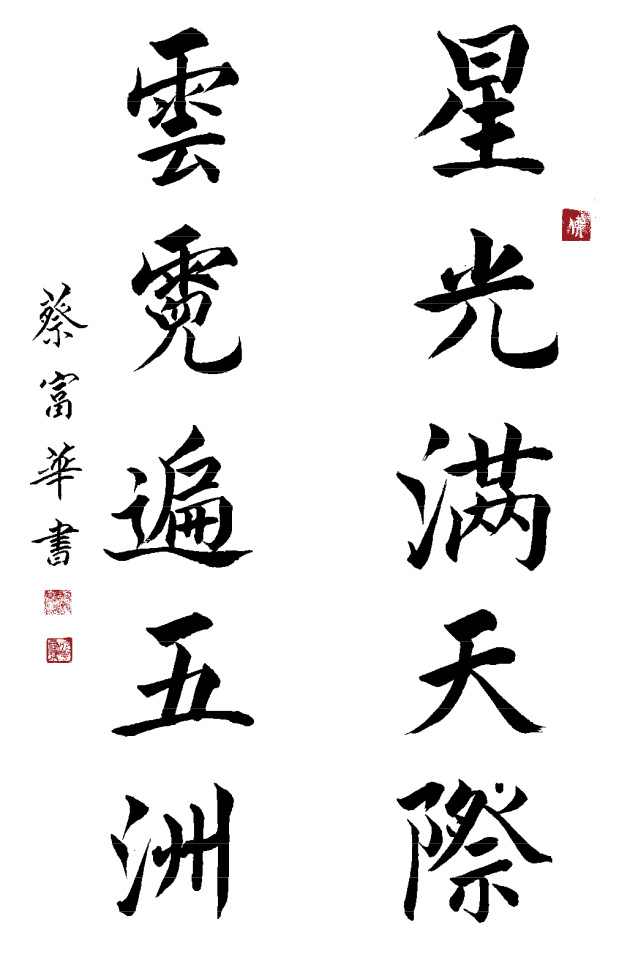 星光满天際
雲霓遍五洲
蔡富華書